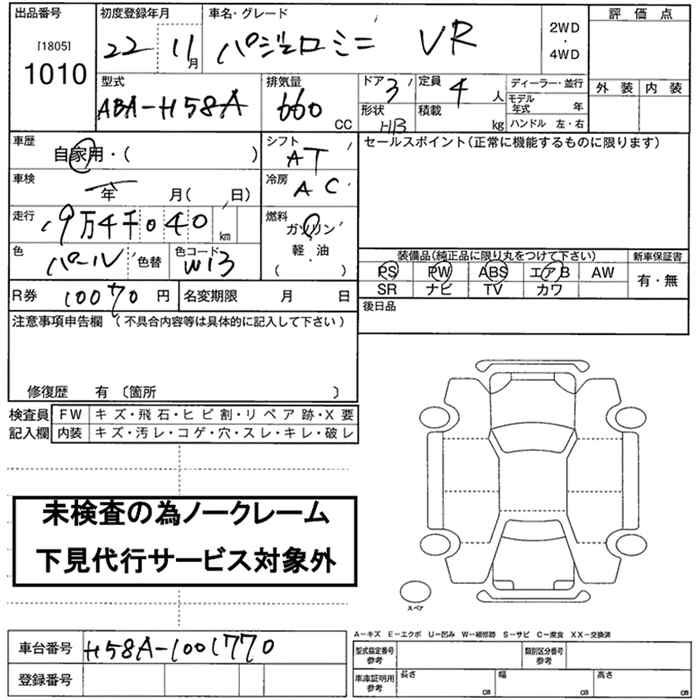 出品番号 初度登録年月 車名・グレード 評価点
[1805]
1010 22 11月 パジェロミニ VR 2WD・4WD
外装 内装
型式 排気量 ドア 定員 ディーラー・並行
ABA-H58A 660 CC 3 4人 モデル年式 年
形状 HB 積載 kg ハンドル 左・右
車歴 シフト セールスポイント(正常に機能するものに限ります)
自家用・( ) AT
車検 冷房
年 月( 日) AC
走行 燃料
9万4千040 km ガソリン
軽・油
( )
色 色替 色コード
パール W13
装備品(純正品に限り丸をつけて下さい) 新車保証書
PS PW ABS エアB AW 有・無
SR ナビ TV カワ
R券 10070円 名変期限 月 日
後日品
注意事項申告欄(不具合内容等は具体的に記入して下さい)
修復歴 有〔箇所 〕
検査員 FW キズ・飛石・ヒビ割・リペア跡・X要
記入欄 内装 キズ・汚レ・コゲ・穴・スレ・キレ・破レ
未検査の為ノークレーム
下見代行サービス対象外
スペア
A－キズ E－エクボ U－凹み W－補修跡 S－サビ C－腐食 XX－交換済
車台番号 H58A-1001770
登録番号
型式指定番号 参考 類別区分番号 参考
車庫証明用 参考 長さ cm 幅 cm 高さ cm